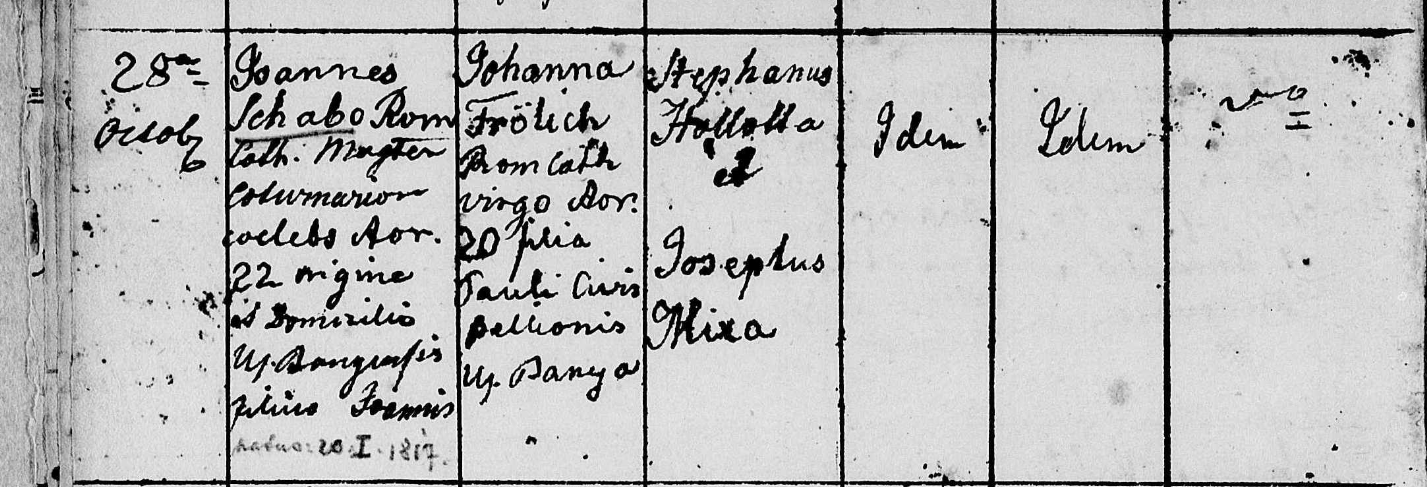 28a
Octob
Joannes
Schabo Rom
Cath. Magter
Coturnarior
coelebs Aor.
22 origine
et Domicilio
Uj Bangensis
filius Joannis
natus: 20. I. 1817.
Johanna
Frölich
Rom Cath
virgo Aor.
20 filia
Pauli Civis
pellionis
Uj Banya
Stephanus
Hollotta
et
Josephus
Mixa
Idem
Idem